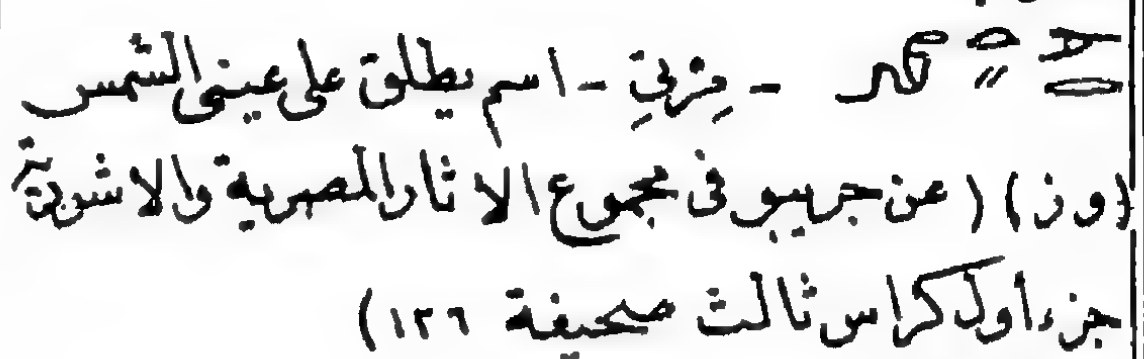 - مِرْتِ - اسم يطلق على عينى الشمس
(وز) (عن جريبو فى مجموع الاثار المصرية والاشورية
جزء أول كراس ثالث صحيفة ١٢٦)